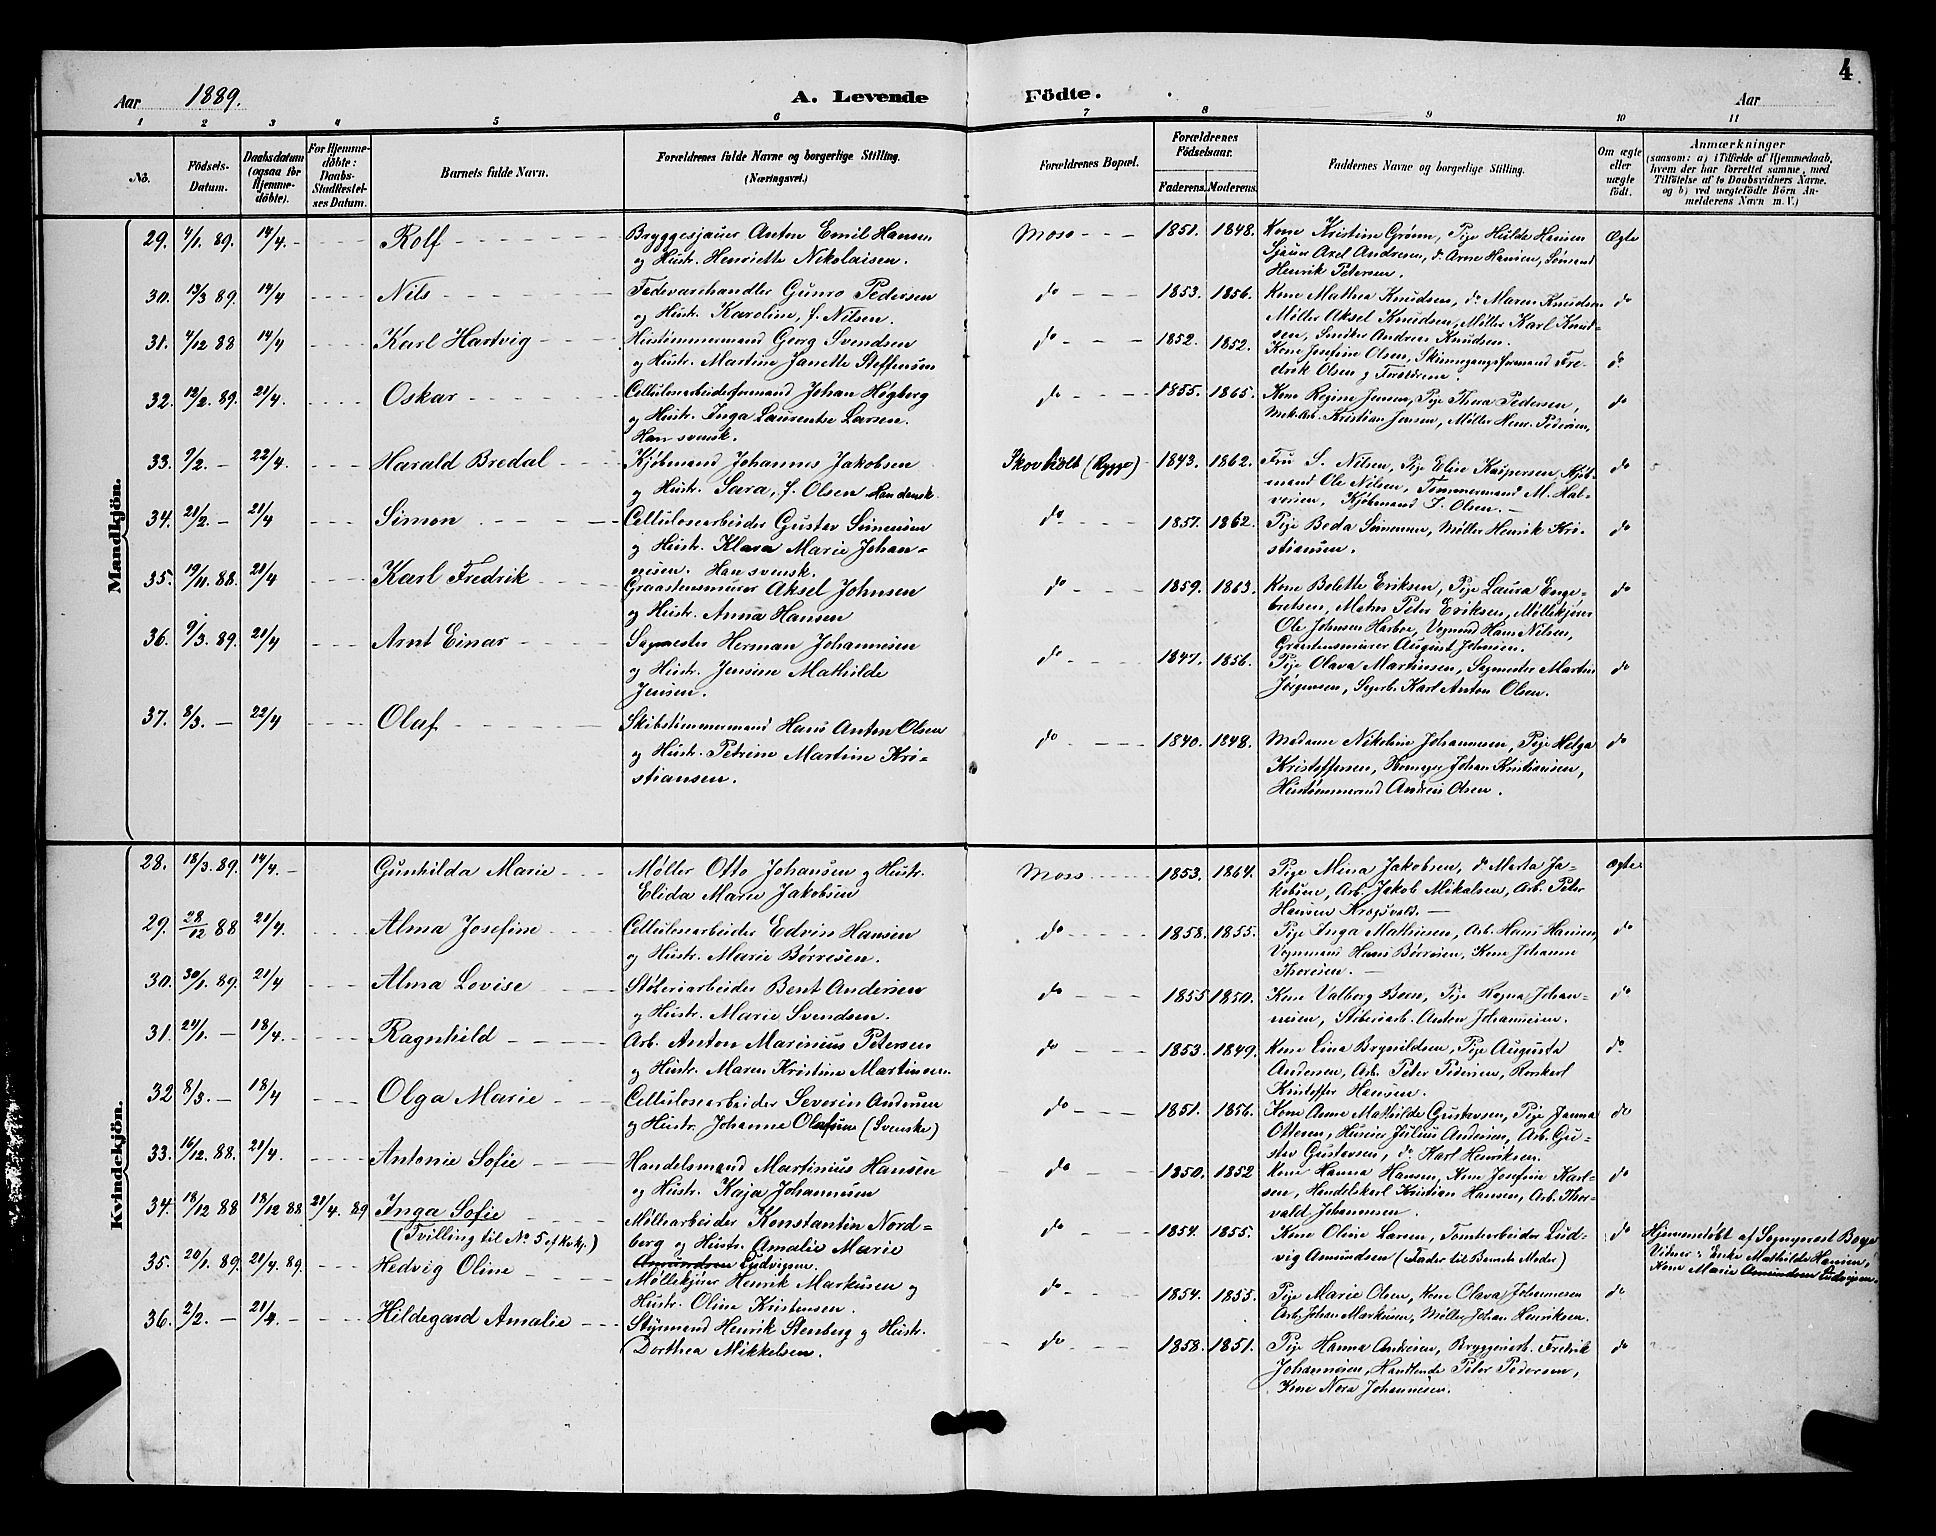 4
Aar 1889.
A. Levende Födte.
Aar
1 2 3 4 5 6 7 8 9 10 11
No.
Födsels-Datum.
Daabsdatum (ogsaa for Hjemme-döbte).
For Hjemme-döbte: Daabs-Stadfæstel-ses Datum.
Barnets fulde Navn.
Forældrenes fulde Navne og borgerlige Stilling. (Næringsvei.)
Forældrenes Bopæl.
Forældrenes Födselsaar.
Faderens. Moderens.
Faddernes Navne og borgerlige Stilling.
Om ægte eller uægte födt.
Anmærkninger
(saasom: a) i Tilfælde af Hjemmedaab, hvem der har forrettet samme, med Tilföielse af to Daabsvidners Navne, og b) ved uægtefödte Börn Anmelderens Navn m. V.)
Mandkjön.
29. 4/1. 89. 14/4. Rolf
Bryggesjauer Anton Emil Hansen
og Hustr. Henriette Nikolaisen.
Moss 1851. 1848.
Kone Kristine Grønn, Pige Hulda Hansen
Sjauer Axel Andresen, do Arne Hansen, Sømand
Henrik Petersen.
Ægte
30. 13/3 89. 14/4 Nils
Fedevarehandler Gunro Pedersen
og Hustr. Karoline, f. Nilsen.
do 1853. 1856.
Kone Mathea Knudsen, do Maren Knudsen
Møller Aksel Knudsen, Møller Karl Knud-
sen, Snedker Andreas Knudsen.
do
31. 4/12 88 14/4 Karl Hartvig
Hustømmermand Georg Svendsen
og Hustr. Martine Janette Steffensen
do 1852. 1852.
Kone Josefine Olsen, Skinnegangsformand Fre-
drik Olsen og Forældrene.
do
32. 12/2. 89. 21/4. Oskar
Cellulosearbeiderformand Johan Högberg
og Hustr. Inga Laurentse Larsen.
Han svensk.
do 1855. 1865.
Kone Regine Jensen, Pige Thora Pedersen,
Mek.arb. Kristian Jensen, Møller Henr. Pedersen,
do
33. 9/2. 22/4. Harald Bredal
Kjöbmand Johannes Jakobsen
og Hustr. Sara, f. Olsen Han dansk.
Skovholt (Rygge) 1843. 1862.
Fru S. Nilsen, Pige Elise Kaspersen, Kjöb-
mand Ole Nilsen, Tømmermand M. Hal-
versen, Kjöbmand S. Olsen.
do
34. 21/2. 21/4 Simon
Cellulosearbeider Gustav Simensen
og Hustr. Klara Marie Johan-
nesen. Han svensk.
do 1857. 1862.
Pige Beda Simensen, Møller Henrik Kri-
stiansen.
do
35. 19/11. 88. 21/4 Karl Fredrik
Graastensmurer Aksel Johnsen
og Hustr. Anna Hansen
do 1859. 1863.
Kone Bolette Eriksen, Pige Laura Enge-
bretsen, Matros Peter Eriksen, Möllekjører
Ole Johnsen Harboe, Vognmd Hans Nilsen,
Graastensmurer August Johnsen.
do
36. 9/3. 89. 21/4 Arnt Einar
Sagmester Herman Johannesen
og Hustr. Jensine Mathilde
Jensen.
do 1847. 1856.
Pige Olava Martinsen, Sagmester Martin
Jørgensen, Sagarb. Karl Anton Olsen.
do
37. 8/3. 22/4 Olaf
Skibstömmermand Hans Anton Olsen
og Hustr. Petrine Martine Kri-
stiansen.
do 1840. 1848.
Madame Nikoline Johannesen, Pige Helga
Kristoffersen, Johan Kristiansen,
Hustømmermand Andreas Olsen.
do
Kvindekjön.
28. 18/3. 89. 14/4. Gunhilda Marie
Møller Otto Johansen og Hustr.
Elida Marie Jakobsen
Moss 1853. 1864.
Pige Mina Jakobsen, do Marta Ja-
kobsen, Arb. Jakob Mikalsen, Arb. Peter
Hansen Krogsvold.
Ægte
29. 28/12 88 21/4. Alma Josefine
Cellulosearbeider Edvin Hansen
og Hustr. Marie Børresen.
do 1858. 1855.
Pige Inga Mathisen, Arb. Hans Hansen,
Vognmand Hans Börresen, Kone Johanne
Thoresen.
do
30. 30/1. 89. 21/4 Alma Lovise
Støberiarbeider Bent Andersen
og Hustr. Marie Svendsen.
do 1855 1850.
Kone Valborg Boen, Pige Ragna Johan-
nesen, Støberiarb. Anton Johannesen.
do
31. 24/1. 18/4. Ragnhild
Arb. Anton Marinius Petersen
og Hustr. Maren Kristine Martinsen.
do 1853. 1849.
Kone Lina Brynildsen, Pige Augusta
Andersen, Arb. Peter Pedersen,
Kristoffer Hansen.
do
32 8/3. 18/4 Olga Marie
Cellulosearbeider Severin Andersen
og Hustr. Johanna Olufsen (Svenske)
do 1851. 1856.
Kone Anne Mathilde Gustavsen, Pige Janna
Ottesen, Huseier Julius Andersen, Arb. Gu-
stav Gustavsen, do Karl Henriksen.
do
33. 16/12. 88. 21/4. Antonie Sofie
Handelsmand Martinius Hansen
og Hustr. Kaja Johannesen
do 1850. 1852
Kone Hanna Hansen, Kone Josefine Karl-
sen, Handelskarl Kristian Hansen, Arb. Thor-
vald Johannesen.
do
34. 18/12 88 18/12 88 21/4. 89 Inga Sofie
(Tvilling til No 5 af Kvkj.)
Møllearbeider Konstantin Nord-
berg og Hustr. Amalie Marie
Amundsen Ludvigsen.
do 1854. 1855.
Kone Oline Larsen, Tomtearbeider Lud-
vig Amundsen (Fader til Barnets Moder)
do
Hjemmedøbt af Sogneprest Boye
Vidner: Enke Mathilde Hansen,
Kone Marie Amundsen Ludvigsen.
35. 20/1. 89. 21/4. 89. Hedvig Oline
Møllekjører Henrik Markusen og
Hustr. Oline Kristensen.
do 1854. 1855.
Pige Marie Olsen, Kone Olava Johannesen
Arb. Johan Markusen, Møller Johan Henriksen.
do
36. 2/2. 21/4. Hildegard Amalie
Styrmand Henrik Stenberg og Hustr.
Dorthea Mikkelsen.
do 1858. 1851.
Pige Hanna Andresen, Bryggeriarb. Fredrik
Johannesen, Handlende Peter Pedersen,
Kone Nora Johannesen.
do